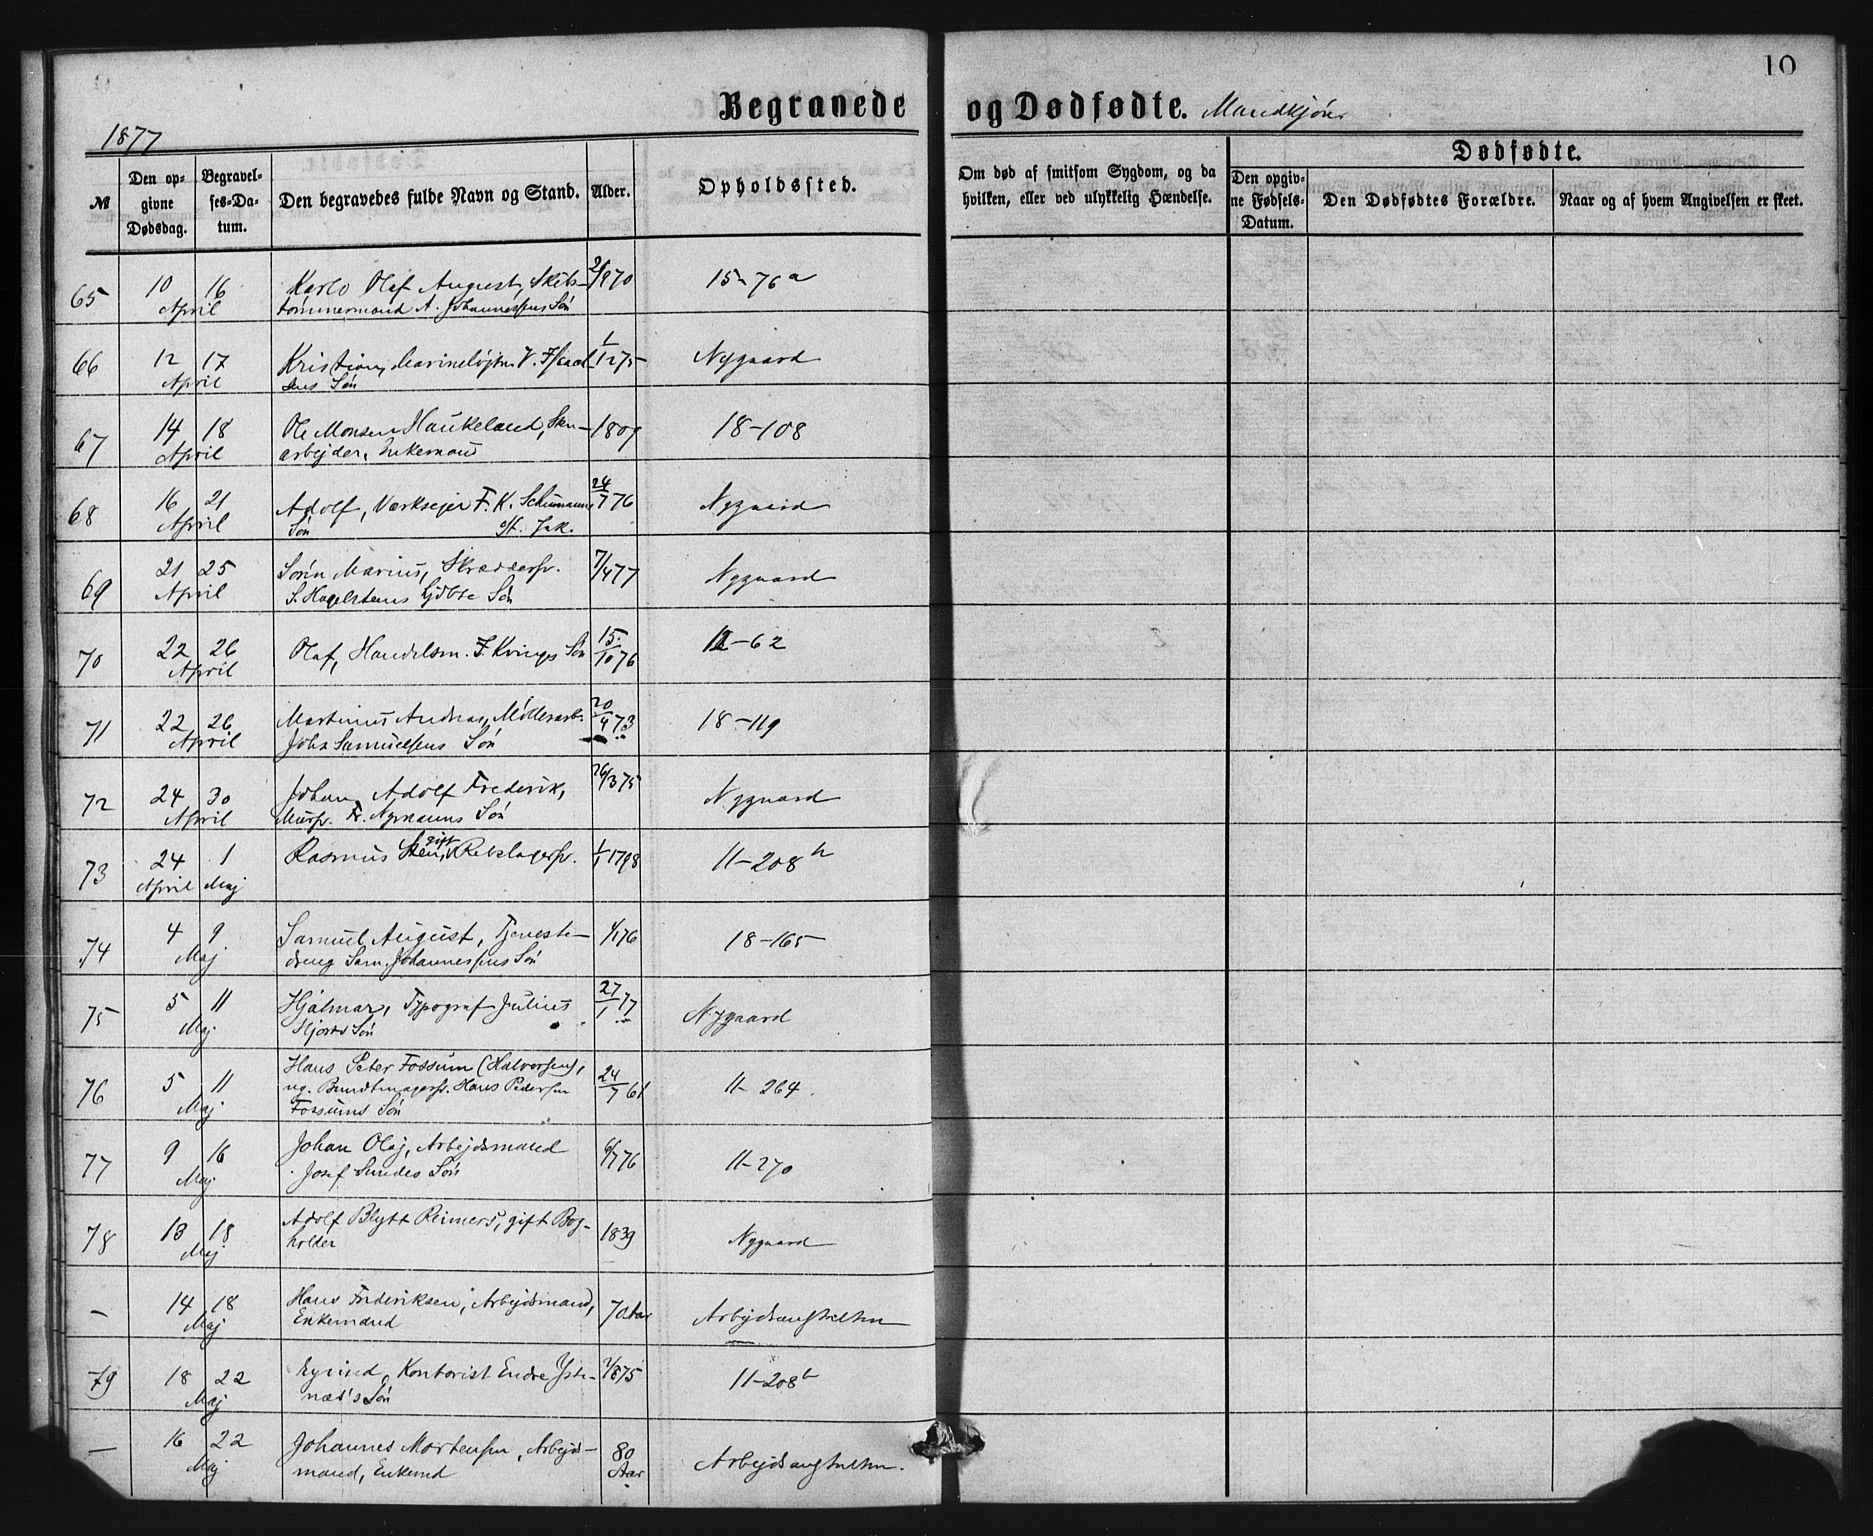 10
Begravede og Dødfødte. Mandkjøn
1877
№
Den opgivne Dødsdag.
Begravelses-Datum.
Den begravedes fulde Navn og Stand.
Alder.
Opholdssted.
Om død af smitsom Sygdom, og da hvilken, eller ved ulykkelig Hændelse.
Dødfødte.
Den opgivne Fødsels-Datum.
Den Dødfødtes Forældre.
Naar og af hvem Angivelsen er skeet.
65 10 16 April Karlo Olaf August, Skibs-
tømmermand A. Johannessens Søn 15-76a
66 12 17 April Kristian, Marineløjtn. V. 1/1275 Nygaard
sens Søn
67 14 18 April Ole Monsen Haukeland, 1809 18-108
arbejder, Enkemand
68 16 21 April Adolf, Værksejer F. K. Schumanns 24/7 76 Nygaard
Søn St. Jak.
69 21 25 April Søren Marius, Skrædersv. 7/4 77 Nygaard
S. Hagelsteens Søn
70 22 26 April Olaf, Handelsm. F. Kvinges Søn 15/10 76 12-62
71 22 26 April Martinus Andreas, Møllerarb. 20/4 73 18-119
Johs Samuelsens Søn
72 24 30 April Johan Adolf Frederik, 26/3 75 Nygaard
Mursv. Fr. Nymanns Søn
73 24 April 1 Maj Rasmus Steen, gift Rebslagersv. 1/1 1798 11-208b
74 4 9 Maj Samuel August, Tjeneste- 1/1 76 18-165
dreng Sam. Johannessens Søn
75 5 11 Maj Hjalmar, Typograf Julius 27/1 77 Nygaard
Hjorts Søn
76 5 11 Maj Hans Peter Fossum (Halvorsen), 24/7 61 11-264
ug. Bundtmagersv. Hans Pedersen
Fossums Søn
77 9 16 Maj Johan Olaj, Arbejdsmand 6/7 76 11-270
Josef Sundes Søn
78 13 18 Maj Adolf Blytt Reimers, gift Bog- 1839 Nygaard
holder
— 14 18 Maj Hans Frederiksen, Arbejdsmand, 70 Aar Arbejdsanstalten
Enkemand
79 18 22 Maj Eyvind, Kontorist Endre Yste- 1/8 75 11-208b
næs's Søn
— 16 22 Maj Johannes Mortensen, Arbejds- 80 Aar Arbejdsanstalten.
mand, Enkemd